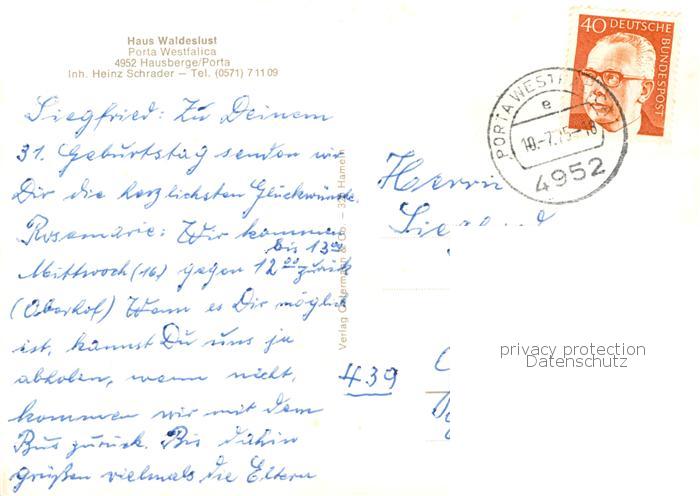 Haus Waldeslust
Porta Westfalica
4952 Hausberge/Porta
Inh. Heinz Schrader — Tel. (0571) 71109
Siegfried: Zu Deinem
31. Geburtstag senden wir
Dir die herzlichsten Glückwünsche.
Rosemarie: Wir kommen
bis 13 00
Mittwoch (16.) gegen 12 00 zurück
(Oberhof) Wenn es Dir möglich
ist, kannst Du uns ja
abholen, wenn nicht,
kommen wir mit dem
Bus zurück. Bis dahin
grüßen vielmals die Eltern
Verlag & Co. — Hameln
40 DEUTSCHE BUNDESPOST
PORTA WESTFALICA
e
10.-7.75-18
4952
Herrn
439
privacy protection
Datenschutz